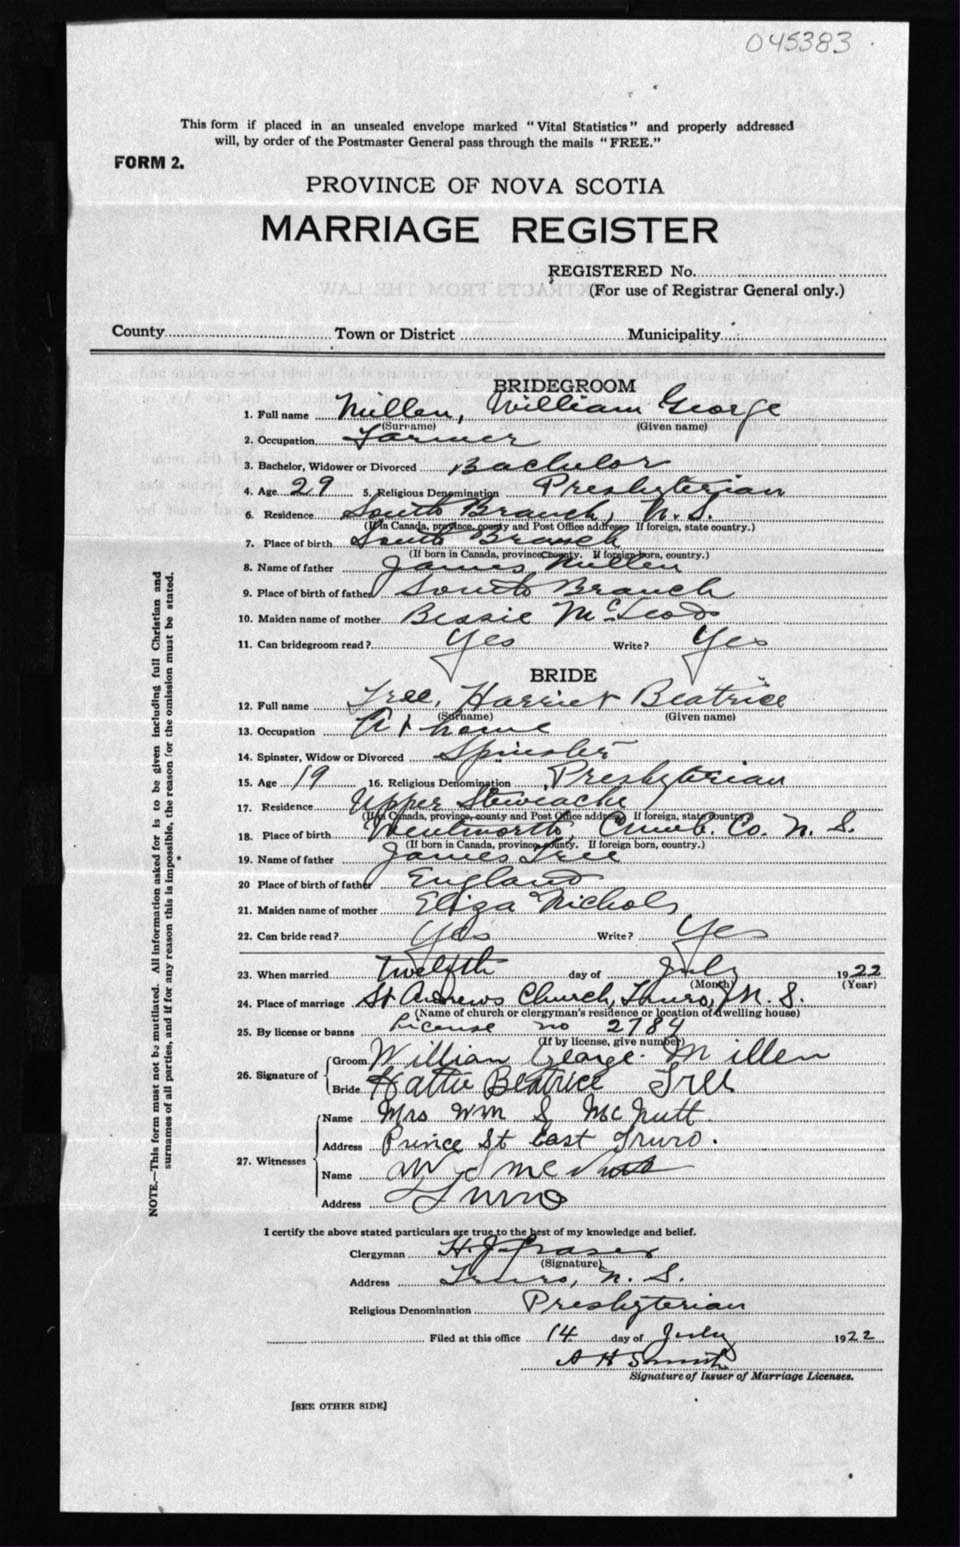 045383
This form if placed in an unsealed envelope marked "Vital Statistics" and properly addressed
will, by order of the Postmaster General pass through the mails "FREE."
FORM 2.
PROVINCE OF NOVA SCOTIA
MARRIAGE REGISTER
REGISTERED No.
(For use of Registrar General only.)
County Town or District Municipality
BRIDEGROOM
1. Full name Millen, William George
(Surname) (Given name)
2. Occupation Farmer
3. Bachelor, Widower or Divorced Bachelor
4. Age 29 5. Religious Denomination Presbyterian
6. Residence South Branch, N.S.
(If in Canada, province, county and Post Office address. If foreign, state country.)
7. Place of birth South Branch
(If born in Canada, province, county. If foreign born, country.)
8. Name of father James Millen
9. Place of birth of father South Branch
10. Maiden name of mother Bessie McLeod
11. Can bridegroom read? Yes Write? Yes
BRIDE
12. Full name Tree, Harriet Beatrice
(Surname) (Given name)
13. Occupation At home
14. Spinster, Widow or Divorced Spinster
15. Age 19 16. Religious Denomination Presbyterian
17. Residence Upper Stewiacke
(If in Canada, province, county and Post Office address. If foreign, state country.)
18. Place of birth Wentworth, Cumb. Co. N. S.
(If born in Canada, province, county. If foreign born, country.)
19. Name of father James Tree
20 Place of birth of father England
21. Maiden name of mother Eliza Nichols
22. Can bride read? Yes Write? Yes
23. When married Twelfth day of July 1922
(Month) (Year)
24. Place of marriage St Andrews Church, Truro, N. S.
(Name of church or clergyman's residence or location of dwelling house)
25. By license or banns License no 2784
(If by license, give number)
26. Signature of Groom William George Millen
Bride Hattie Beatrice Tree
27. Witnesses Name Mrs Wm S McNutt
Address Prince St East Truro.
Name W S McNutt
Address Truro
I certify the above stated particulars are true to the best of my knowledge and belief.
Clergyman H. J. Fraser
(Signature)
Address Truro, N. S.
Religious Denomination Presbyterian
Filed at this office 14 day of July 1922
A H Smith
Signature of Issuer of Marriage Licenses.
[SEE OTHER SIDE]
NOTE.—This form must not be mutilated. All information asked for is to be given including full Christian and
surnames of all parties, and if for any reason this is impossible, the reason for the omission must be stated.